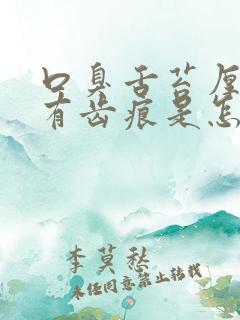 口臭舌苔厚
有齿痕是怎
李莫愁
未经同意禁止转载